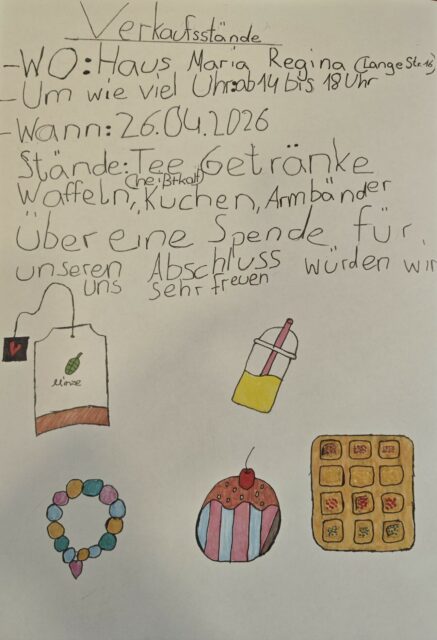 Verkaufsstände
-WO: Haus Maria Regina (Lange Str. 16)
- Um wie viel Uhr: ab 14 bis 18 Uhr
- Wann: 26.04.2026
Stände: Tee Getränke
(heiß+kalt)
Waffeln, Kuchen, Armbänder
Über eine Spende für
unseren Abschluss würden wir
uns sehr freuen
Minze